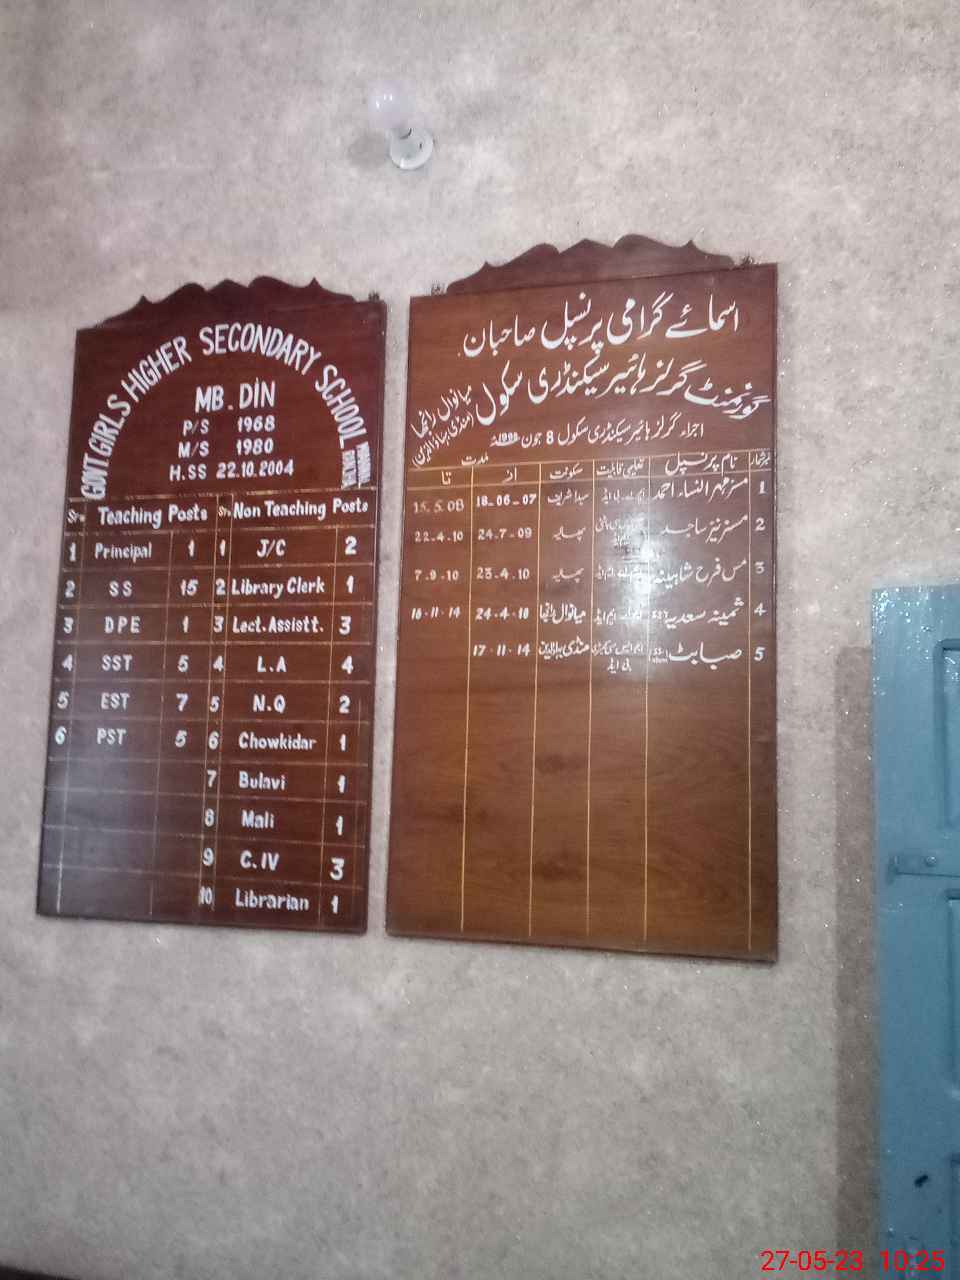 GOVT. GIRLS HIGHER SECONDARY SCHOOL
MB. DIN
P/S 1968
M/S 1980
H.SS 22.10.2004
Sr# Teaching Posts Sr# Non Teaching Posts
1 Principal 1 1 J/C 2
2 SS 15 2 Library Clerk 1
3 DPE 1 3 Lect. Assistt. 3
4 SST 5 4 L.A 4
5 EST 7 5 N.Q 2
6 PST 5 6 Chowkidar 1
7 Bulavi 1
8 Mali 1
9 C.IV 3
10 Librarian 1
اسمائے گرامی پرنسپل صاحبان
گورنمنٹ گرلز ہائیر سیکنڈری سکول میانوال رانجھا
(منڈی بہاؤالدین)
اجراء گرلز ہائیر سیکنڈری سکول 8 جون
نمبر شمار نام پرنسپل تعلیمی قابلیت سکونت مدت
از تا
1 مسز مہر النساء احمد سیدا شریف 18-06-07 15.5.08
2 مسز نیئر ساجد پھالیہ 24-7-09 22-4-10
3 مس فرح شاہینہ پھالیہ 23-4-10 7-9-10
4 ثمینہ سعدیہ میانوال رانجھا 24-4-10 16-11-14
5 صبا بٹ منڈی بہاؤالدین 17-11-14
27-05-23 10:25